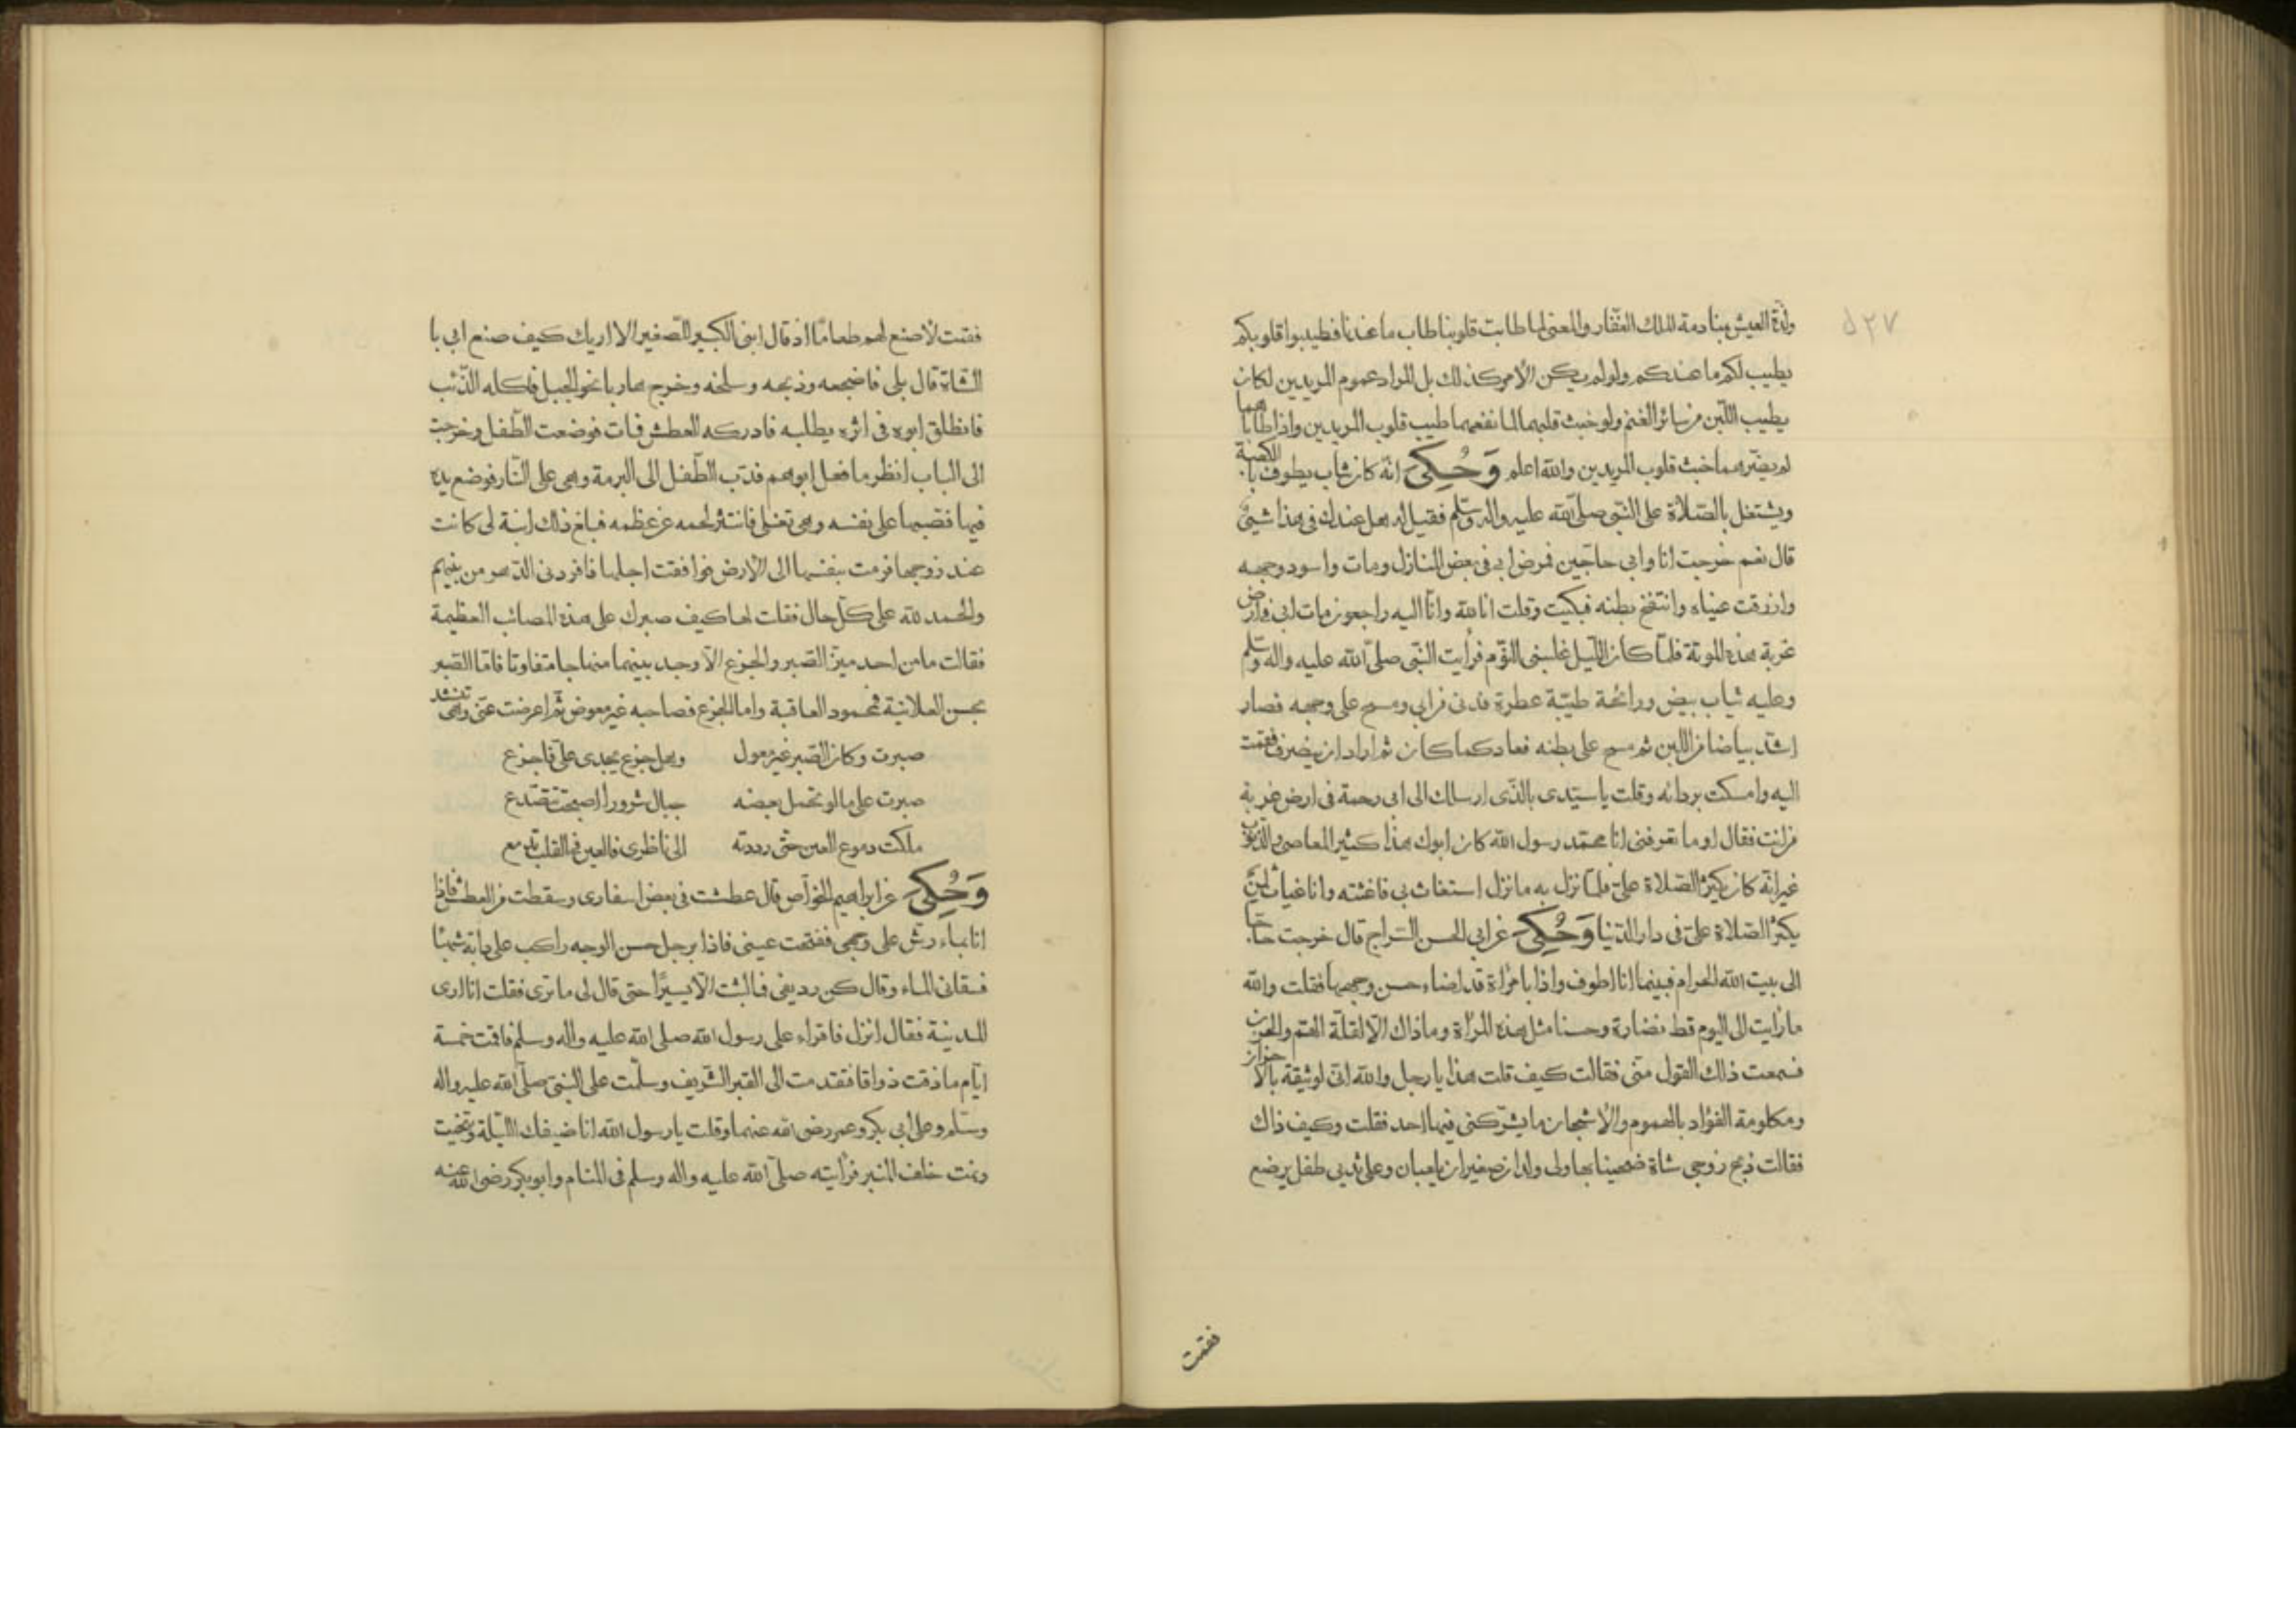 ٥٢٧
ولذة العيش بمنادمة الملك الغفّار والمعنى لما طابت قلوبنا طاب ما عندنا فطيبوا قلوبكم
يطيب لكم ما عندكم ولو لم يكن الأمر كذلك بل المراد عموم المريدين لكان
يطيب اللّبن من سائر الغنم ولو خبث قلبهما لما نفعهما طيب قلوب المريدين واذا طابا هما
لم يضرّهما خبث قلوب المريدين والله اعلم وَحُكِىَ انّه كان شاب يطوف بالكعبة
ويشتغل بالصّلاة على النّبى صلى الله عليه واله وسلّم فقيل له هل عندك فى هذا شيئ
قال نعم خرجت انا وابى حاجّين فمرض ابى فى بعض المنازل ومات واسود وجهه
وازرقت عيناه وانتفخ بطنه فبكيت وقلت انا لله وانّا اليه راجعون مات ابى فى ارض
غربة هذه الموتة فلمّا كان اللّيل غلبنى النّوم فرأيت النّبى صلى الله عليه واله وسلّم
وعليه ثياب بيض ورائحة طيّبة عطرة فدنى من ابى ومسح على وجهه فصار
اشدّ بياضا من اللبن ثم مسح على بطنه فعاد كما كان ثم اراد ان ينصرف فقمت
اليه وامسكت بردائه وقلت يا سيّدى بالّذى ارسلك الى ابى رحمة فى ارض غربة
من انت فقال او ما تعرفنى انا محمّد رسول الله كان ابوك هذا كثير المعاصى والذّنوب
غير انّه كان يكثر الصّلاة علىّ فلمّا نزل به ما نزل استغاث بى فاغثته وانا غياث لمن
يكثر الصّلاة علىّ فى دار الدّنيا وَحُكِىَ عن ابى الحسن السّراج قال خرجت حاجّا
الى بيت الله الحرام فبينما انا اطوف واذا بامرأة قد اضاء حسن وجهها فقلت والله
ما رأيت الى اليوم قط نضارة وحسنا مثل هذه المرأة وما ذاك الّا لقلّة الهمّ والحزن
فسمعت ذلك القول منّى فقالت كيف قلت هذا يا رجل والله انّى لوثيقة بالأحزان
ومكلومة الفؤاد بالهموم والأشجان ما يشركنى فيها احد فقلت وكيف ذاك
فقالت ذبح زوجى شاة ضحينا بها ولى ولدان صغيران يلعبان وعلى ثديى طفل يرضع
فقمت
فقمت لأصنع لهم طعامًا اذ قال ابنى الكبير للصّغير الا اريك كيف صنع ابى با
الشّاة قال بلى فاضجعه وذبحه وسلخه وخرج هاربا نحو الجبل فاكله الذّئب
فانطلق ابوه فى اثره يطلبه فادركه العطش فمات فوضعت الطّفل وخرجت
الى الباب انظر ما فعل ابوهم فدبّ الطّفل الى البرمة وهى على النّار فوضع يده
فيها فصبها على نفسه وهى تغلى فانتثر لحمه عن عظمه فبلغ ذلك ابنة لى كانت
عند زوجها فرمت بنفسها الى الأرض فوافقت اجلها فافردنى الدّهر من بينهم
والحمد لله على كلّ حال فقلت لها كيف صبرك على هذه المصائب العظيمة
فقالت ما من احد ميّز الصّبر والجزع الّا وجد بينهما منهاجا متفاوتا فامّا الصّبر
بحسن العلانية فمحمود العاقبة واما الجزع فصاحبه غير معوض ثمّ اعرضت عنّى وهى تنشد
صبرت وكان الصّبر خير معول وهل جزع يجدى علىّ فاجزع
صبرت على ما لو تحمل بعضه جبال شرورا اصبحت تتصّدع
ملكت دموع العين حتّى رددته الى ناظرى فالعين فى القلب تدمع
وَحُكِىَ عن ابراهيم الخوّاص قال عطشت فى بعض اسفارى وسقطت من العطش فاذا
انا بماء رشّ على وجهى ففتحت عينى فاذا برجل حسن الوجه راكب على دابّة شهبا
فسقانى الماء وقال كن رديفى فما لبثت الّا يسيرًا حتى قال لى ما ترى فقلت انا ارى
المدينة فقال انزل فاقراء على رسول الله صلى الله عليه واله وسلم فاقمت خمسة
ايّام ما ذقت ذواقا فتقدمت الى القبر الشّريف وسلّمت على النبىّ صلّى الله عليه واله
وسلّم وعلى ابى بكر وعمر رضى الله عنهما وقلت يا رسول الله انا ضيفك اللّيلة وتنحيت
ونمت خلف المنبر فرأيته صلّى الله عليه واله وسلم فى المنام وابو بكر رضى الله عنه